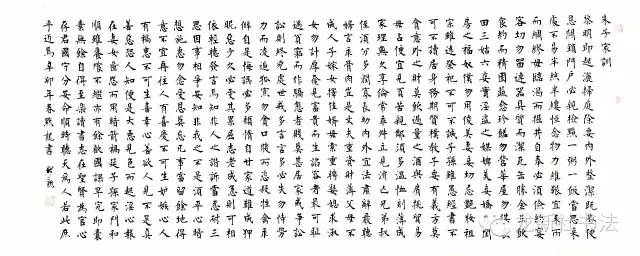 朱子家訓
黎明即起灑掃庭除要內外整潔既昏便
息關鎖門戶必親檢點一粥一飯當思來
處不易半絲半縷恆念物力維艱宜未雨
而綢繆毋臨渴而掘井自奉必須儉約宴
客切勿留連器具質而潔瓦缶勝金玉飲
食約而精園蔬愈珍饈勿營華屋勿謀良
田三姑六婆實淫盜之媒婢美妾嬌非閨
房之福奴僕勿用俊美妻妾切忌艷妝祖
宗雖遠祭祀不可不誠子孫雖愚經書不
可不讀居身務期質樸教子要有義方莫
貪意外之財莫飲過量之酒與肩挑貿易
毋占便宜見貧苦親鄰須多溫恤刻薄成
家理無久享倫常乖舛立見消亡兄弟叔
侄須分多潤寡長幼內外宜法肅辭嚴聽
婦言乖骨肉豈是丈夫重資財薄父母不
成人子嫁女擇佳婿毋索重聘娶媳求淑
女勿計厚奩見富貴而生諂容者最可恥
遇貧窮而作驕態者賤莫甚居家戒爭訟
訟則終凶處世戒多言言多必失勿恃勢
力而凌逼孤寡勿貪口腹而恣殺牲禽乖
僻自是悔誤必多頹惰自甘家道難成狎
昵惡少久必受其累屈志老成急則可相
依輕聽發言安知非人之譖訴當忍耐三
思因事相爭安知非我之不是須平心暗
想施惠勿念受恩莫忘凡事當留餘地得
意不宜再往人有喜慶不可生妒忌心人
有禍患不可生喜幸心善欲人見不是真
善惡恐人知便是大惡見色而起淫心報
在妻女匿怨而用暗箭禍延子孫家門和
順雖饔飧不繼亦有餘歡國課早完即囊
橐無餘自得至樂讀書志在聖賢為官心
存君國守分安命順時聽天為人若此庶
乎近焉 辛卯年春熙龍書